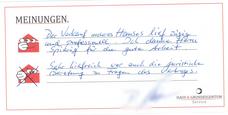 MEINUNGEN.
Der Verkauf unseres Hauses lief zügig
und professionell. Ich danke Herrn
für die gute Arbeit.
Sehr hilfreich war auch die juristische
Beratung zu Fragen des Vertrags.
HAUS & GRUNDEIGENTUM
Service